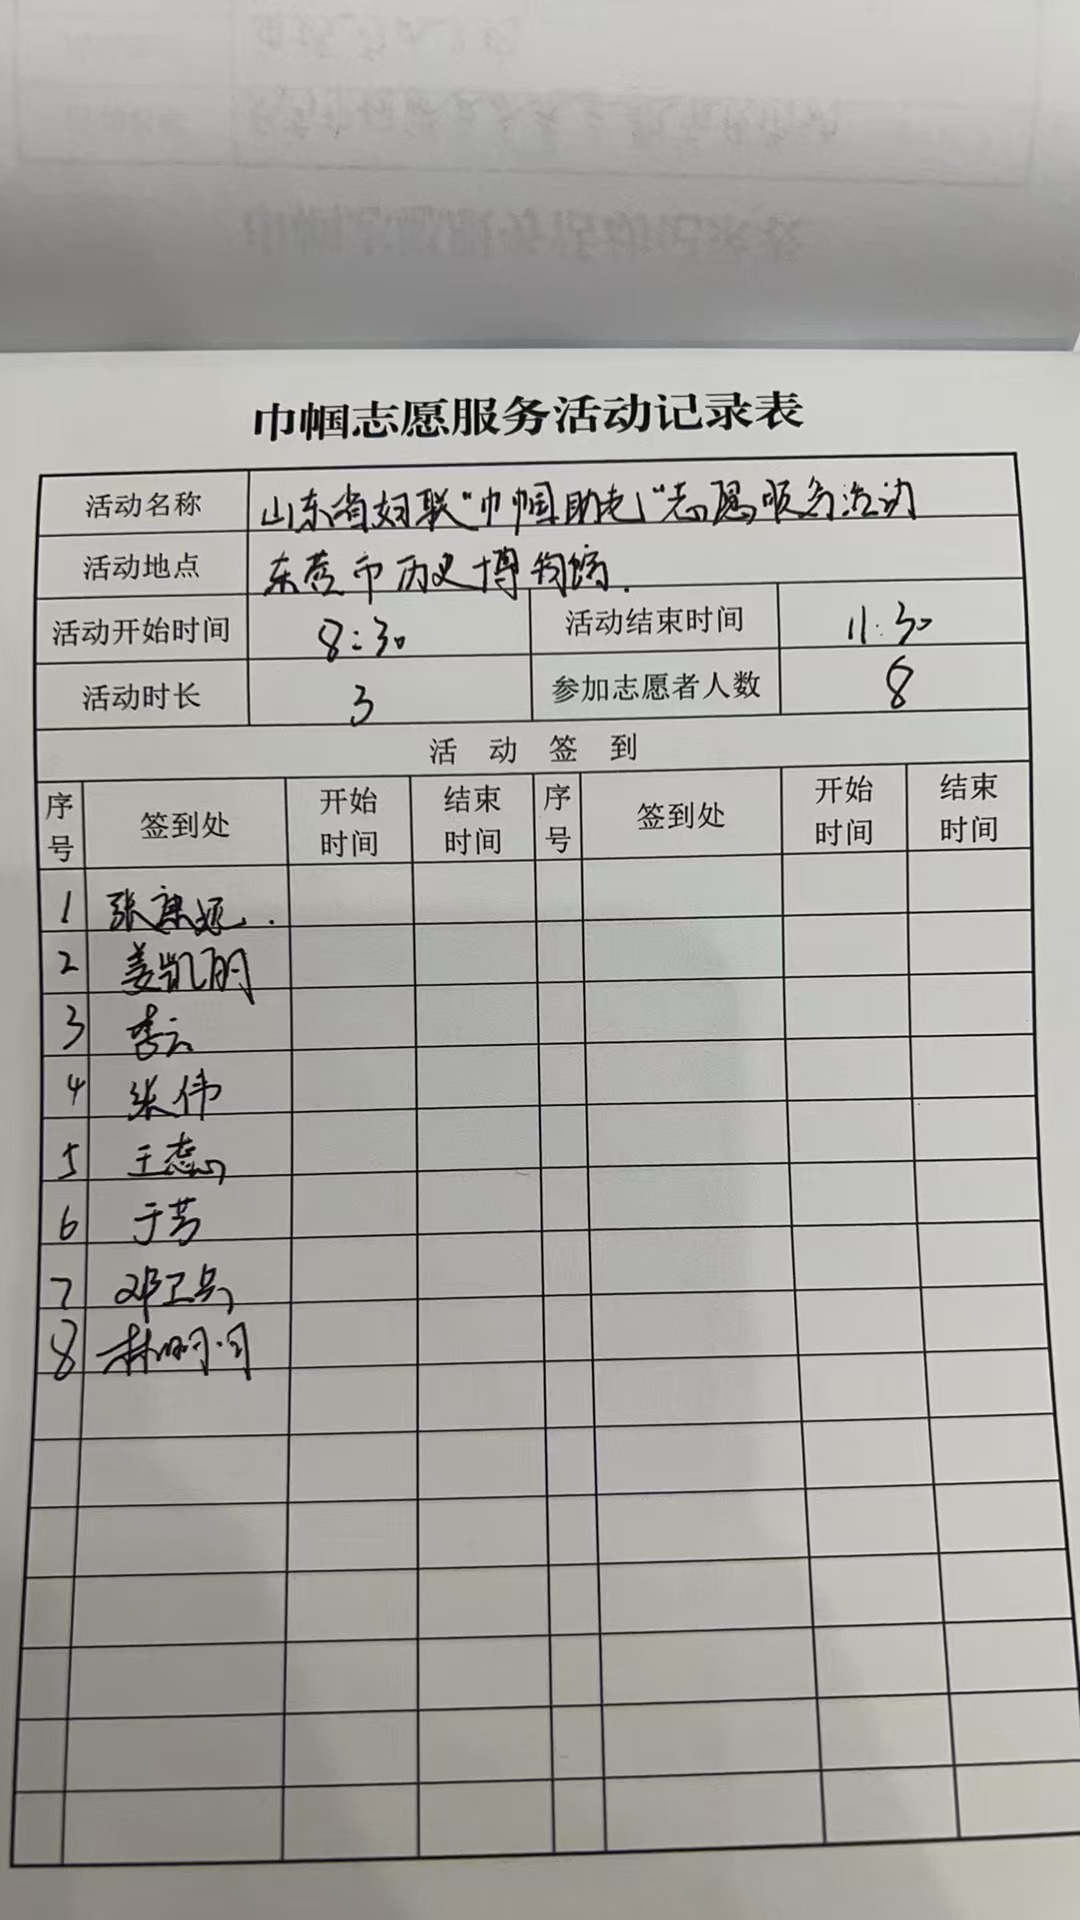 巾帼志愿服务活动记录表
活动名称 山东省妇联“巾帼助老”志愿服务活动
活动地点 东营市历史博物馆.
活动开始时间 8:30 活动结束时间 11:30
活动时长 3 参加志愿者人数 8
活动签到
序号 签到处 开始时间 结束时间 序号 签到处 开始时间 结束时间
1 张
2 姜凯丽
3 李云
4 张伟
5 王蕊
6 于芳
7 邓卫兵
8 林明月